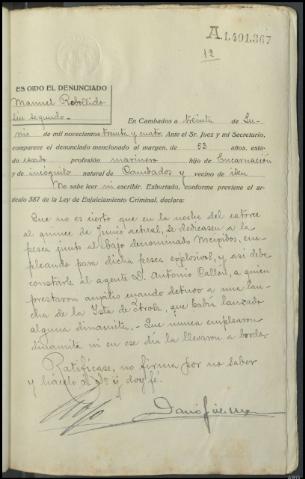 A1.401.367
12
ES OIDO EL DENUNCIADO
Manuel Rebollido
sin segundo.-
En Cambados a treinta de Ju-
nio de mil novecientos treinta y cuatro Ante el Sr. Juez y mi Secretario,
comparece el denunciado mencionado al margen, de 53 años, esta-
do casado profesión marinero hijo de Encarnación
y de incognito natural de Cambados y vecino de idem
No sabe leer ni escribir. Exhortado, conforme previene el ar-
tículo 387 de la Ley de Enjuiciamiento Criminal, declara:
Que no es cierto que en la noche del catorce
al quince de Junio actual, se dedicasen a la
pesca junto al bajo denominado em-
pleando para dicha pesca explosivos, y así debe
constarle al agente D. Antonio a quien
prestaron auxilio cuando detuvo a una lan-
cha de la Isla de que había lanzado
alguna dinamita.- Que nunca emplearon
dinamita ni en ese día la llevaron a bordo.
Ratifícase, no firma por no saber
y hácelo el Sr. Juez doy fé.